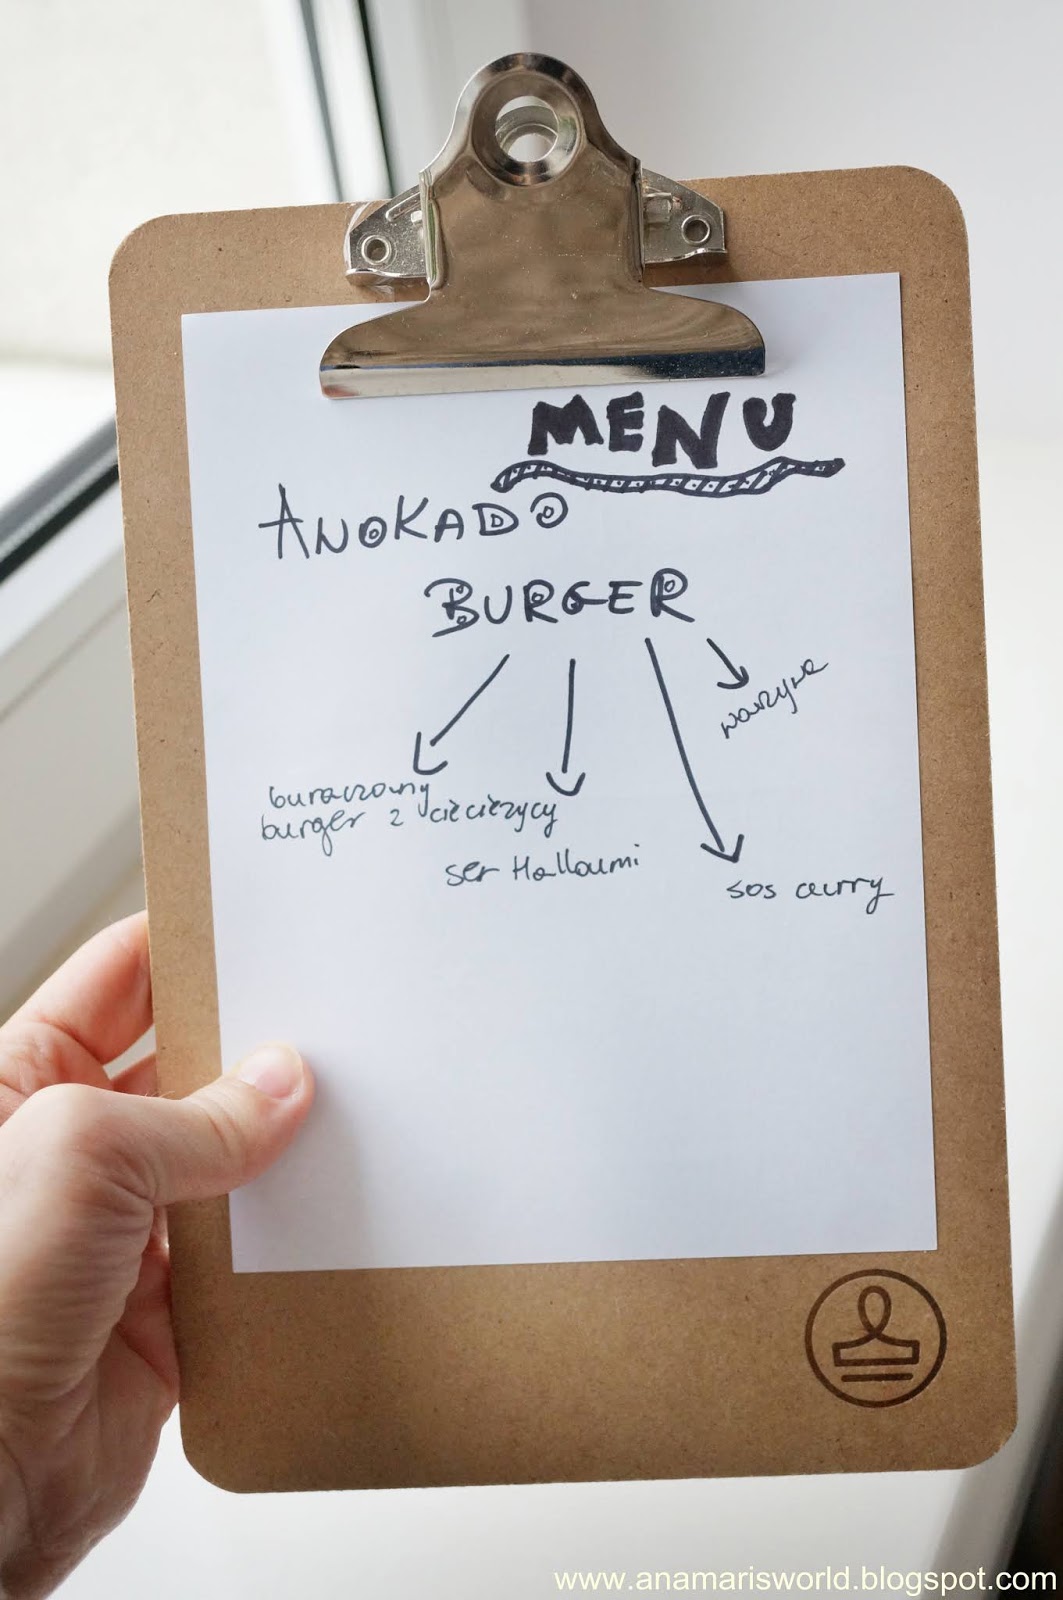 MENU
AWOKADO
BURGER
warzywa
buraczany
burger z ciecierzycy
ser Halloumi
sos curry
www.anamarisworld.blogspot.com